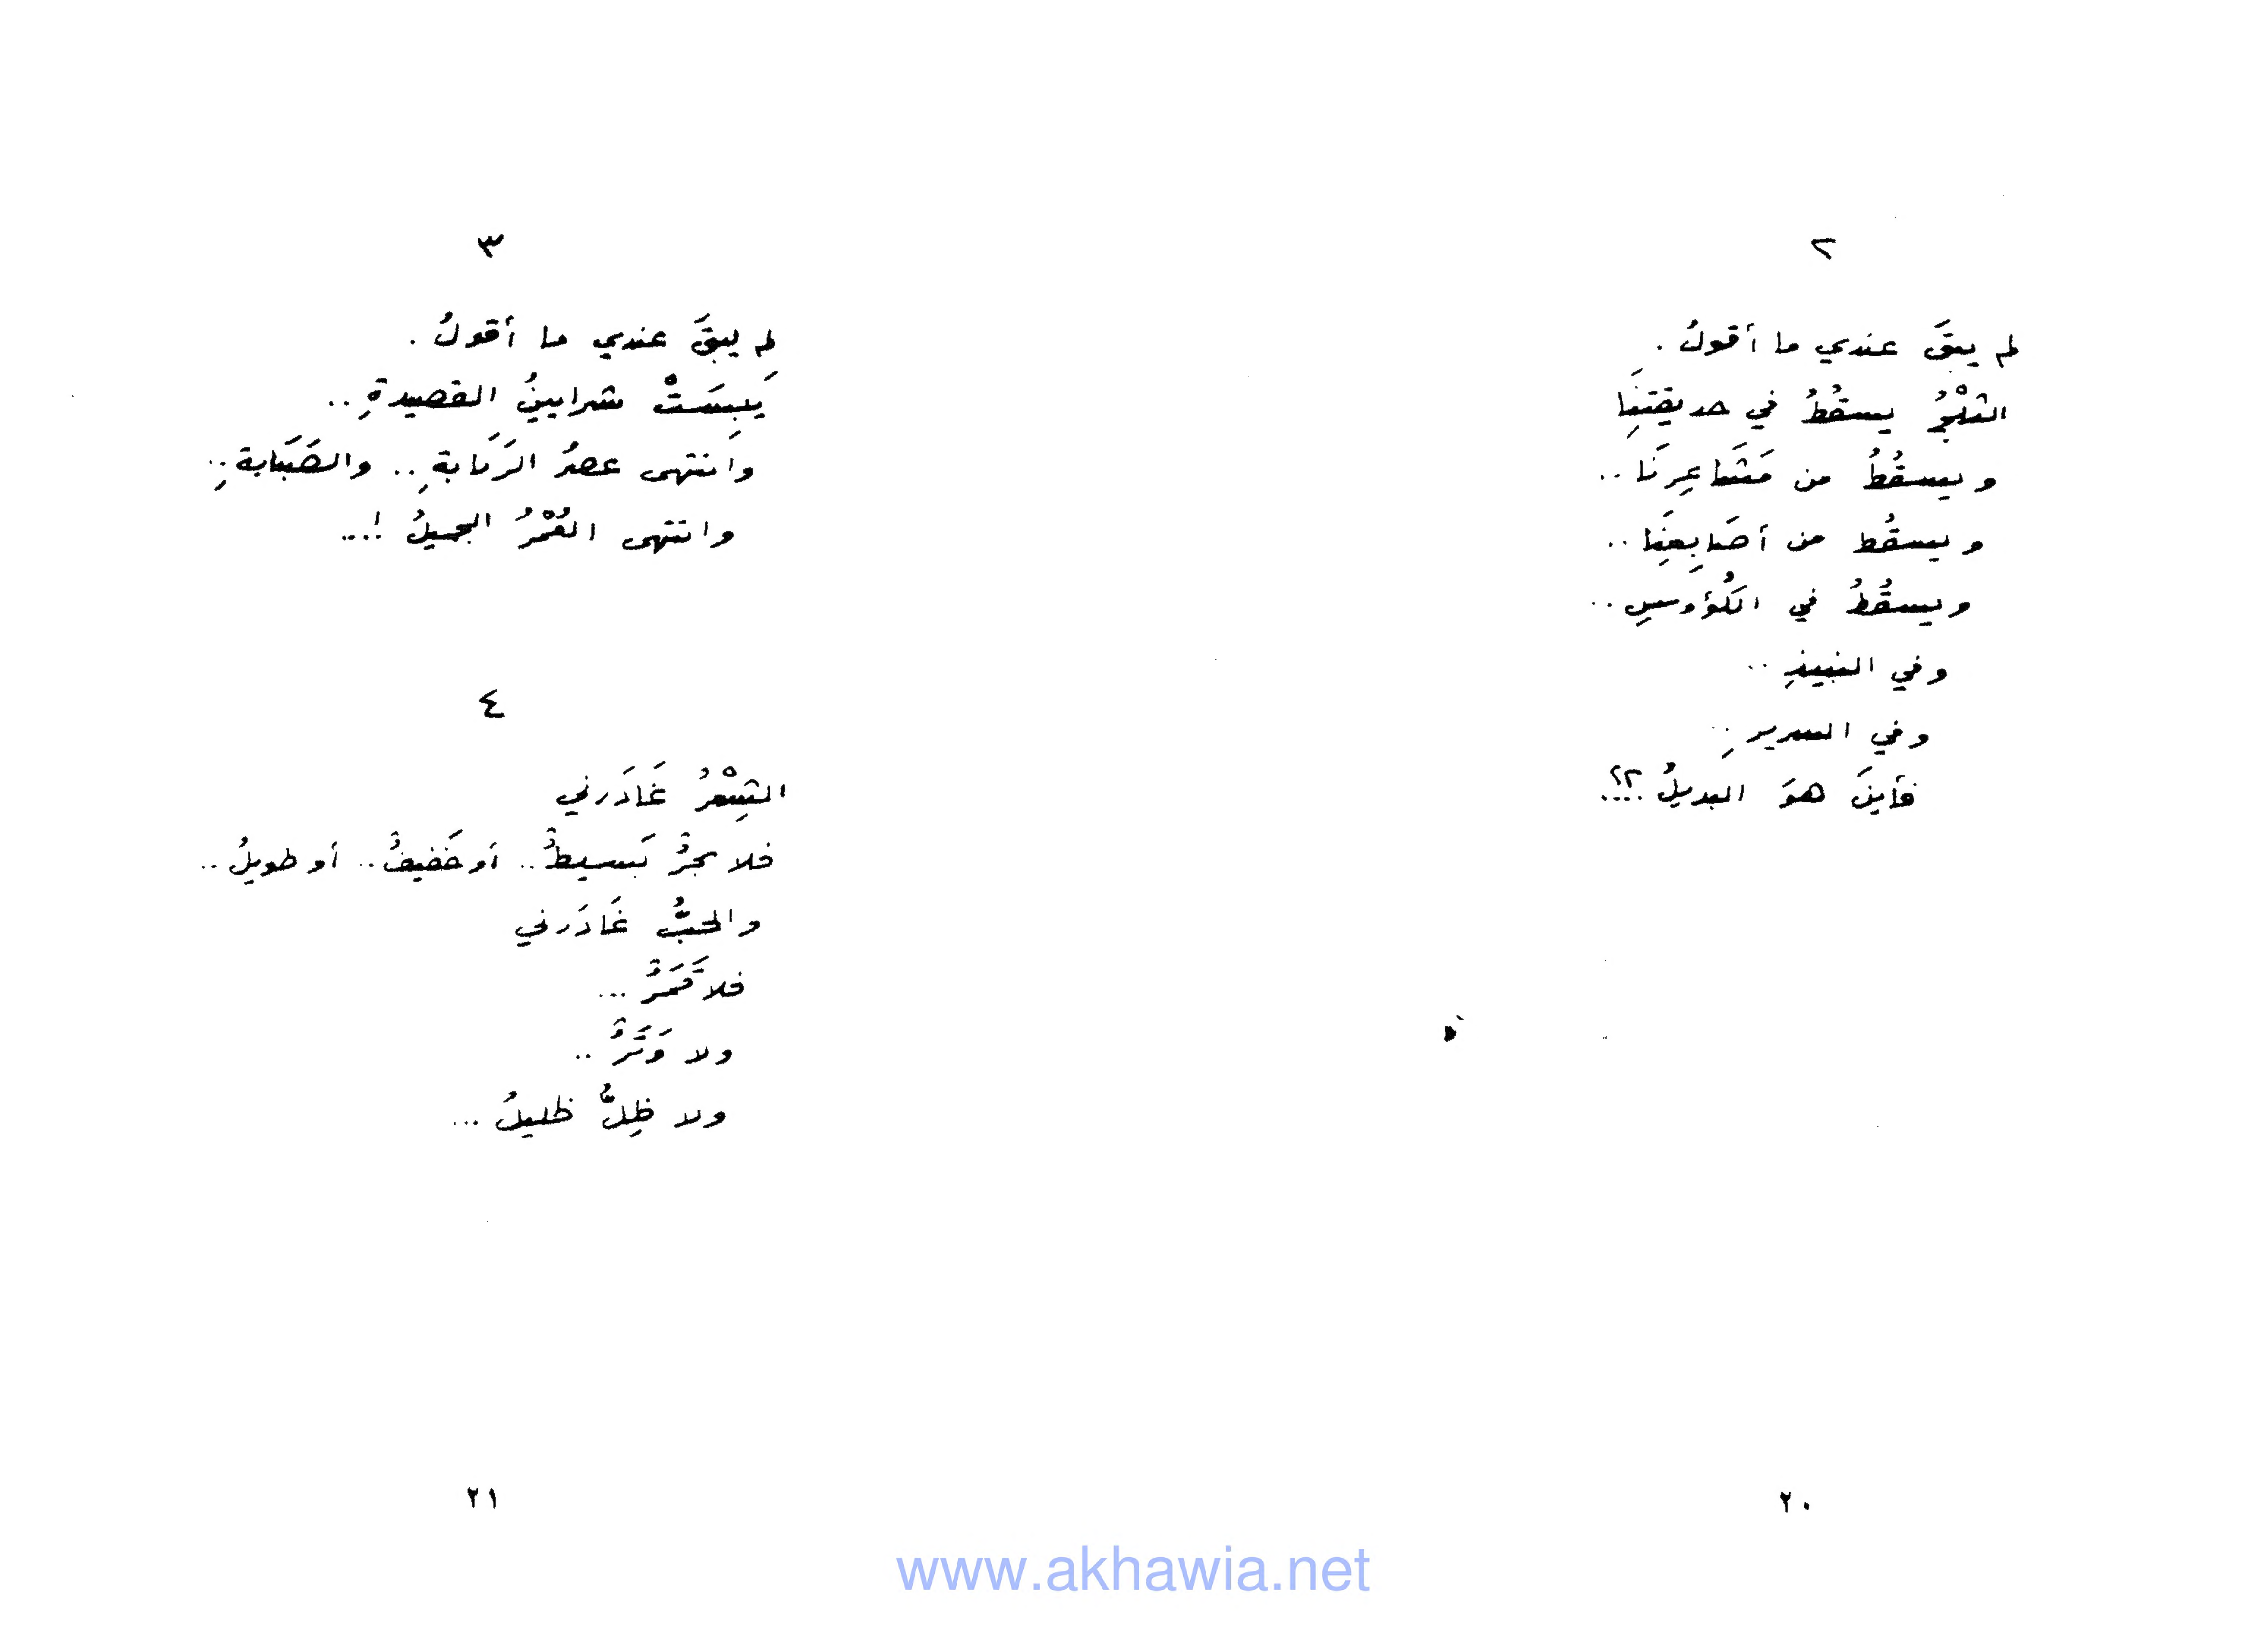 ٢
لم يبقَ عندي ما أقولُ .
الثلْجُ يسقُطُ في حديقتِنَا
ويسقُطُ من مَشَاعِرِنَا ..
ويسقُط من أصَابِعِنَا ..
ويسقُطُ في الكُؤوسِ ..
وفي النبيذِ ..
وفي السريرِ ..
فأينَ هوَ البديلُ ....؟؟
٢٠
٣
لم يبقَ عندي ما أقولُ .
يَبِسَتْ شرايينُ القصيدةِ ..
وانتهى عصرُ الرَبَابةِ .. والصَبَابةِ ..
وانتهى العُمْرُ الجميلُ !...
٤
الشِعْرُ غَادَرني
فلا بحرٌ بَسيطٌ .. أو خَفيفٌ .. أو طويلُ ..
والحبُّ غَادَرني
فلا قَمَرٌ ...
ولا وَتَرٌ ..
ولا ظِلٌّ ظليلُ ...
٢١
www.akhawia.net